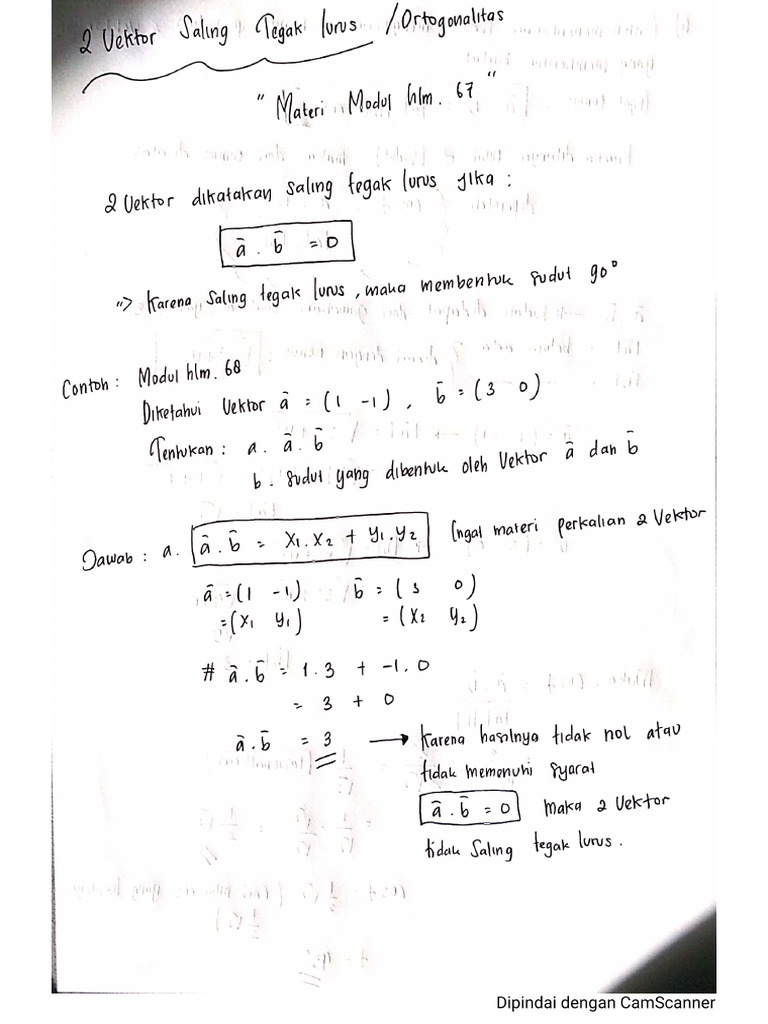 2 Vektor Saling Tegak lurus / Ortogonalitas
" Materi Modul hlm. 67 "
2 Vektor dikatakan saling tegak lurus jika :
ā . b̄ = 0
=> Karena saling tegak lurus, maka membentuk sudut 90°
Contoh : Modul hlm. 68
Diketahui Vektor ā = (1 -1) , b̄ = (3 0)
Tentukan : a. ā . b̄
b. sudut yang dibentuk oleh Vektor ā dan b̄
Jawab : a. ā . b̄ = x₁ . x₂ + y₁ . y₂ Ingat materi perkalian 2 Vektor
ā = (1 -1) b̄ = (3 0)
= (x₁ y₁) = (x₂ y₂)
# ā . b̄ = 1.3 + -1.0
= 3 + 0
ā . b̄ = 3 → Karena hasilnya tidak nol atau
tidak memenuhi syarat
ā . b̄ = 0 maka 2 Vektor
tidak saling tegak lurus.
Dipindai dengan CamScanner